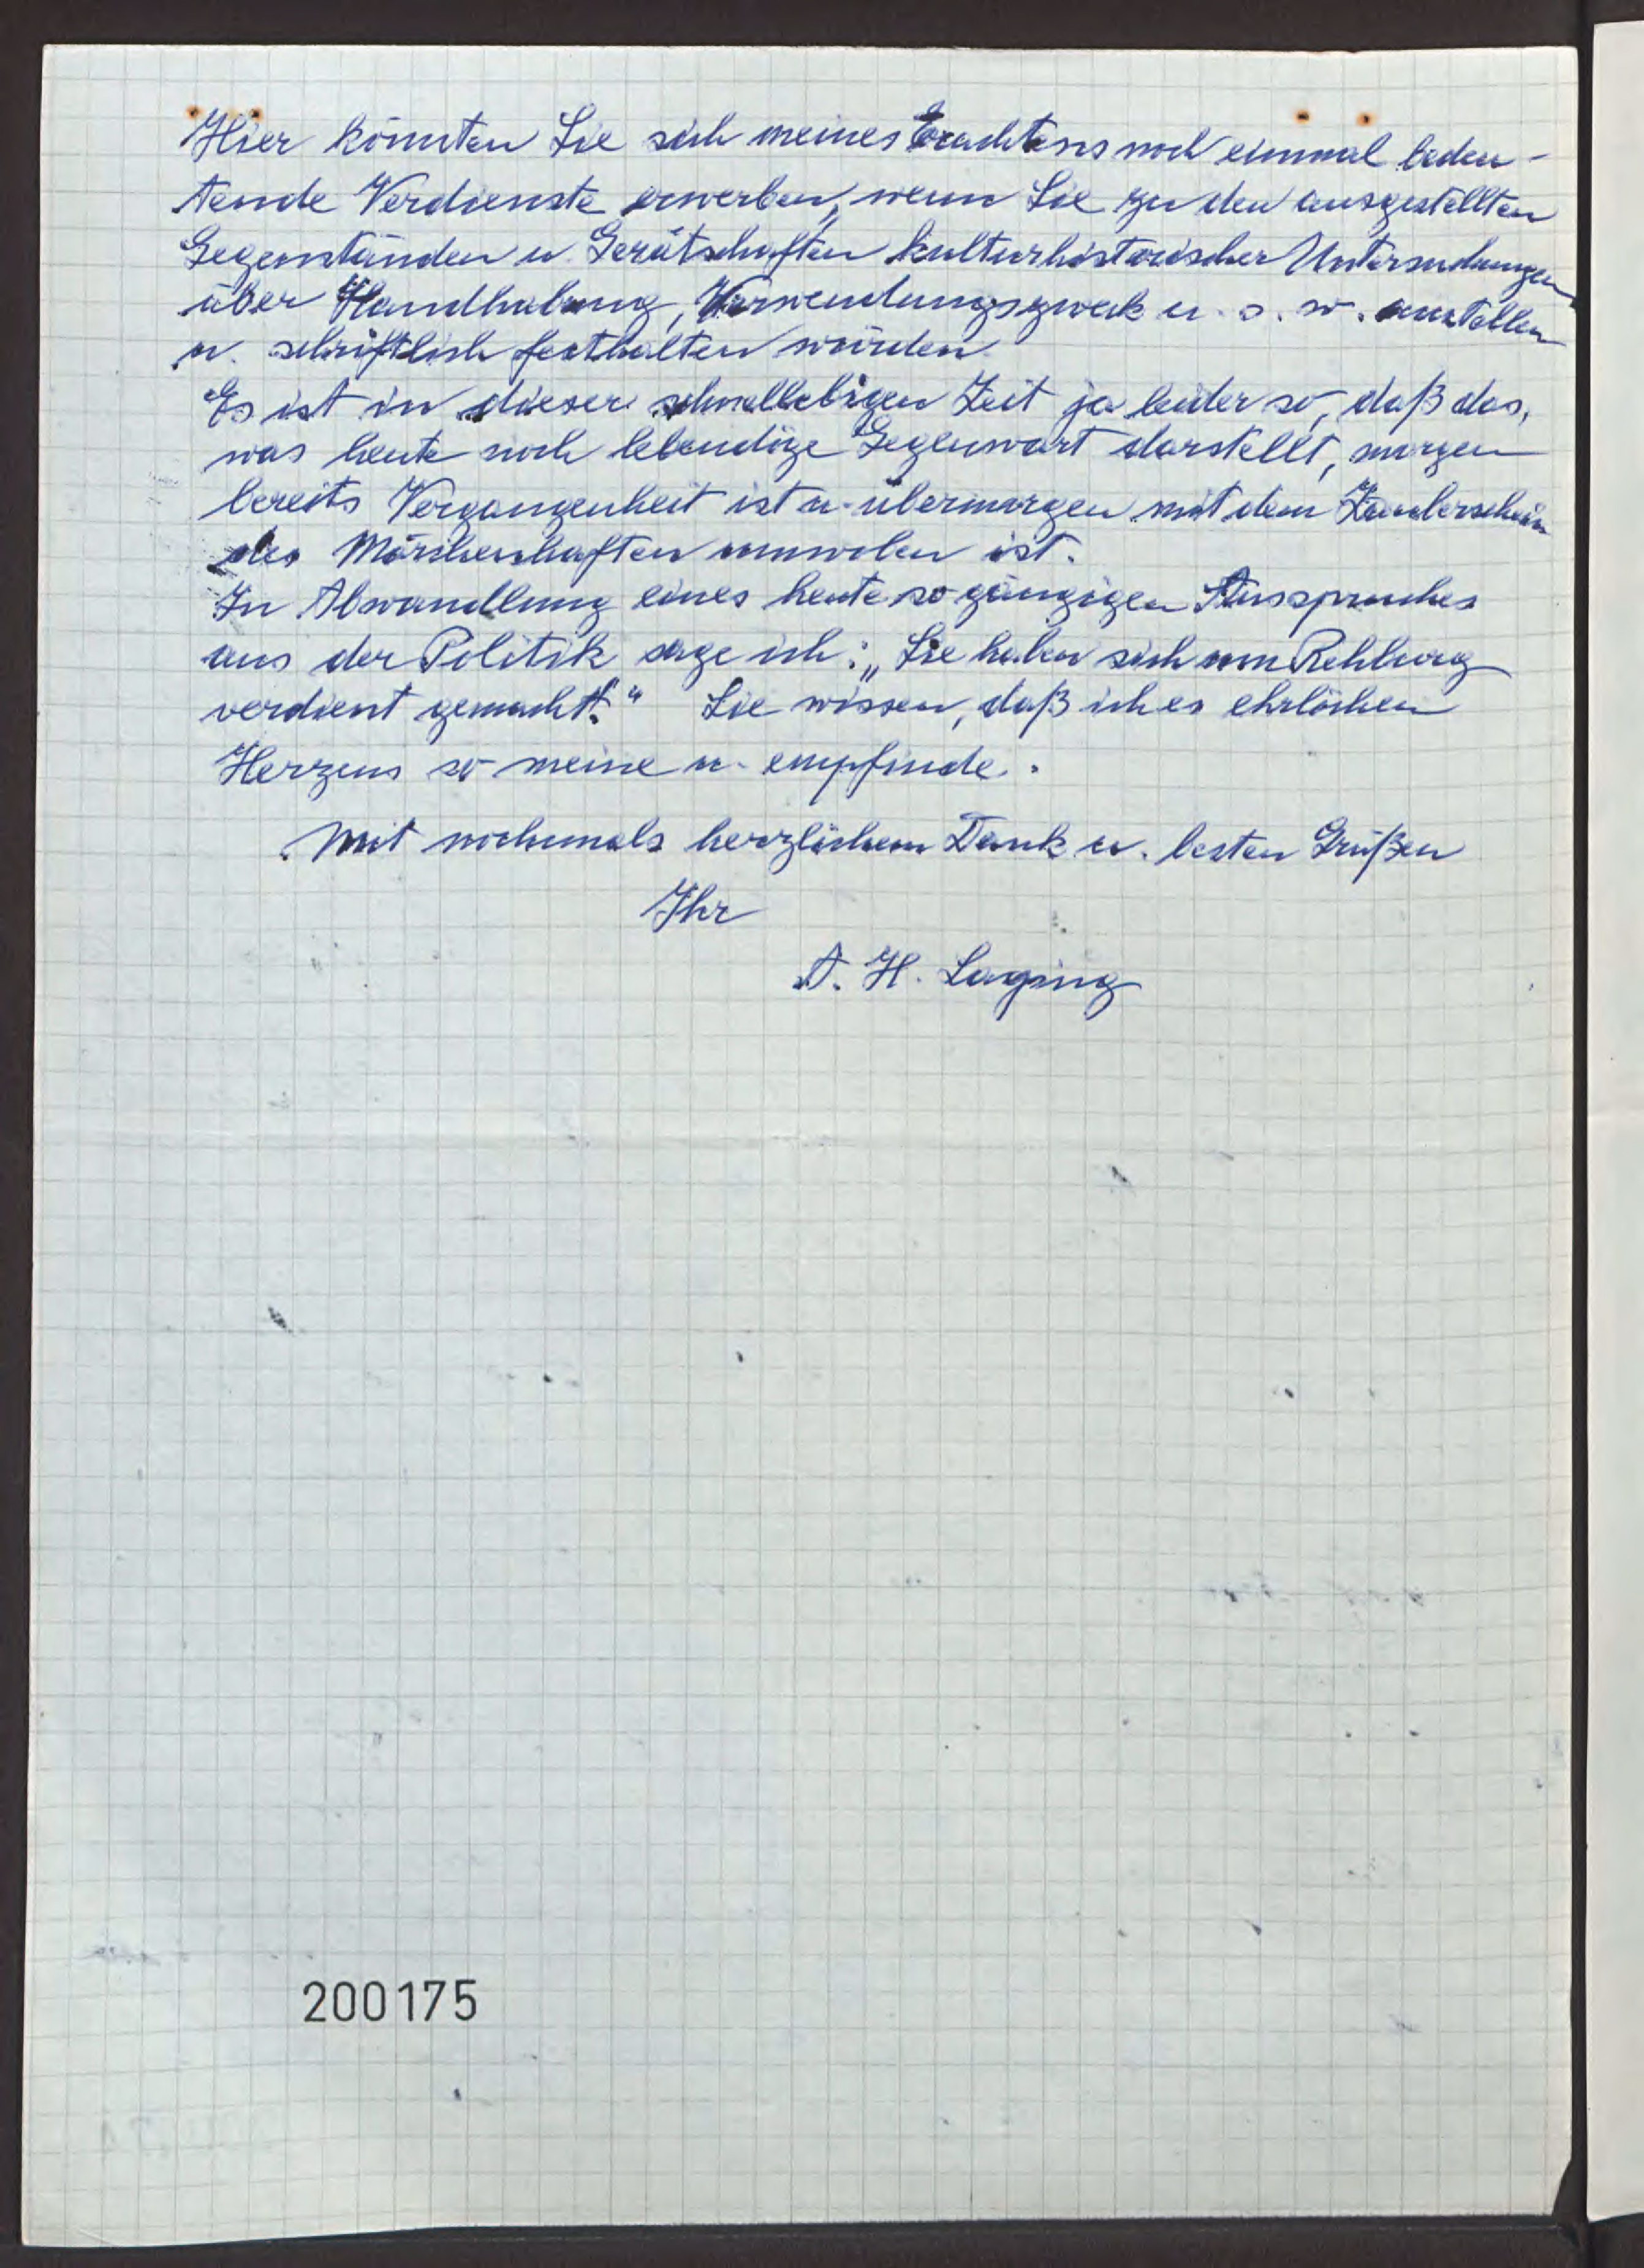 Hier könnten Sie sich meines Erachtens noch einmal bedeu-
tende Verdienste erwerben, wenn Sie zu den ausgestellten
Gegenständen u. Gerätschaften kulturhistorischer Untersuchungen
über Handhabung, Verwendungszweck u. s. w. anstellen
u. schriftlich festhalten würden.
Es ist in dieser schnellebigen Zeit ja leider so, daß das,
was heute noch lebendige Gegenwart darstellt, morgen
bereits Vergangenheit ist u. übermorgen mit dem Zauberschein
des Märchenhaften umwoben ist.
In Abwandlung eines heute so gängigen Ausspruches
aus der Politik sage ich: „Sie haben sich um Rehburg
verdient gemacht!" Sie wissen, daß ich es ehrlichen
Herzens so meine u. empfinde.
Mit nochmals herzlichem Dank u. besten Grüßen
Ihr
A. H. Laging
200175